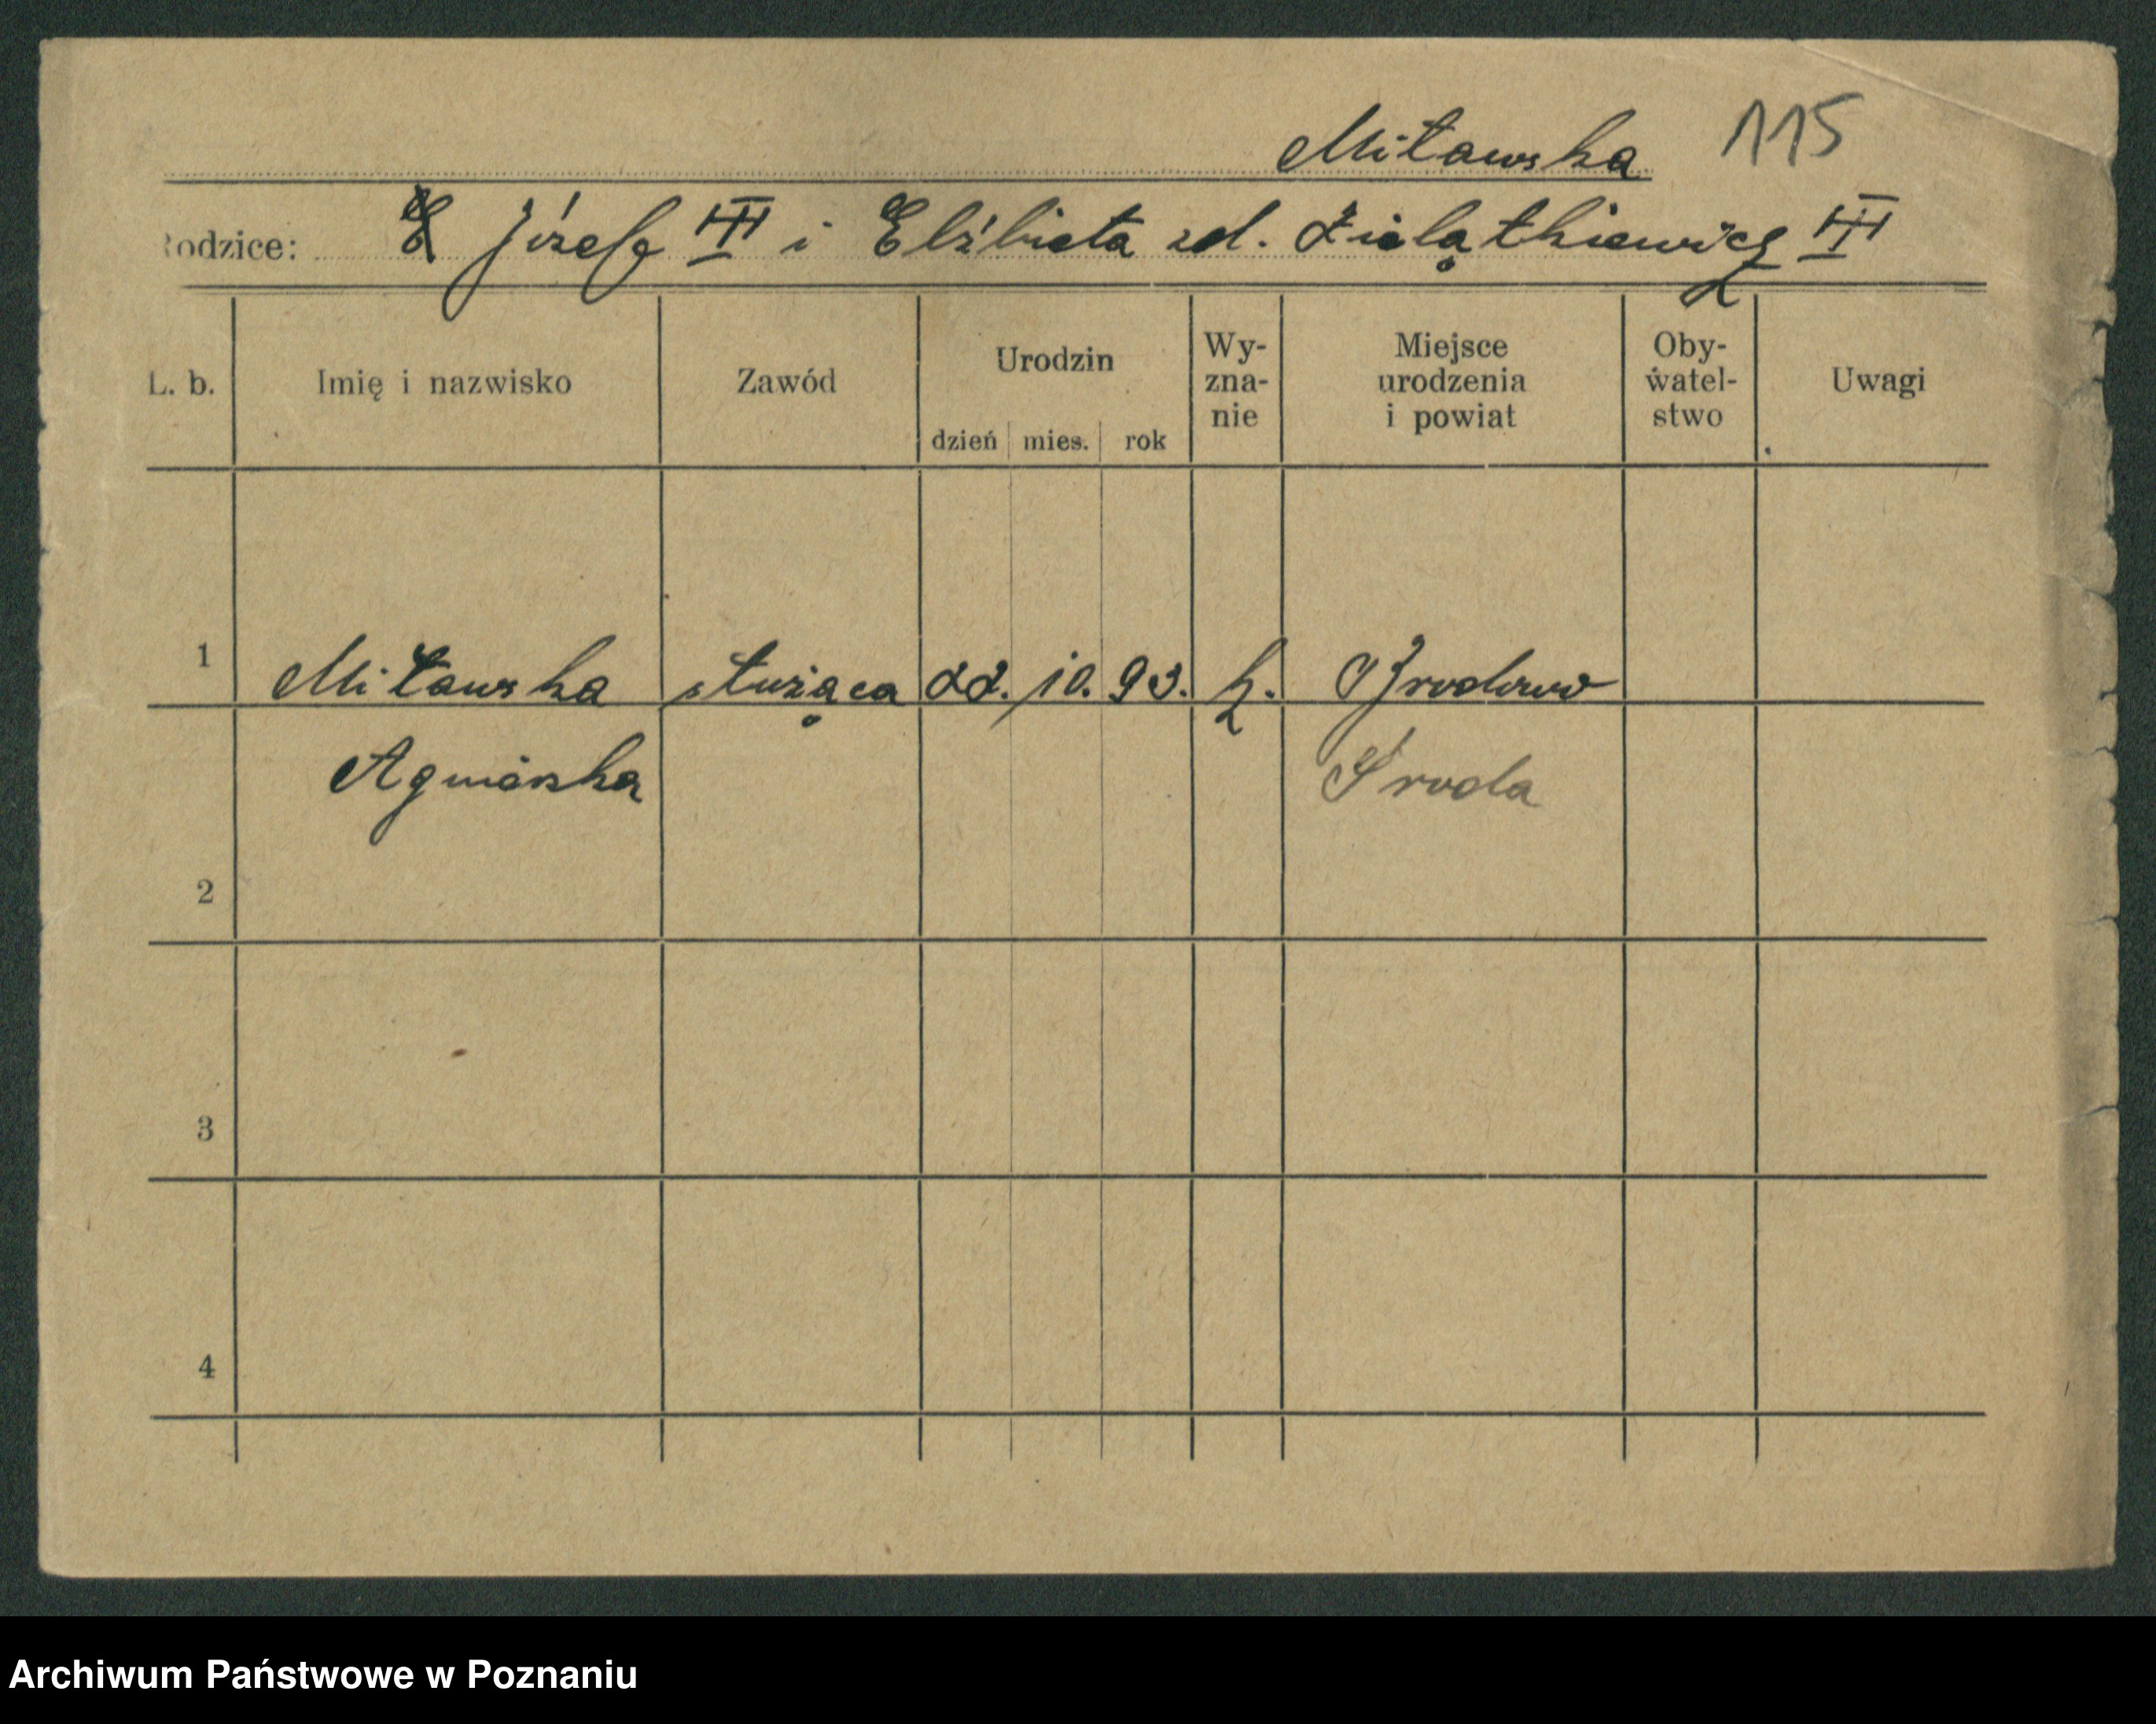 Miławska 115
Rodzice: Józef III i Elżbieta zd. Zielątkiewicz III
L. b. Imię i nazwisko Zawód Urodzin dzień mies. rok Wy-zna-nie Miejsce urodzenia i powiat Oby-watel-stwo Uwagi
1 Miławska służąca 22. 10. 93. k. Brodowo
Agnieszka Środa
2
3
4
Archiwum Państwowe w Poznaniu